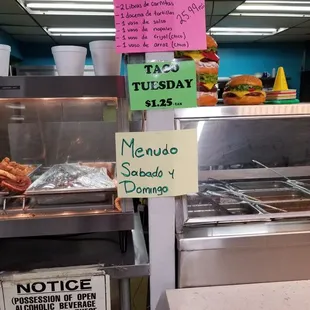 2 Libras de carnitas
1 docena de tortillas
1 vaso de salsa (chica)
1 vaso de nopales
1 vaso de frijol (chico)
1 vaso de arroz (chico)
35.99
TACO
TUESDAY
$1.25
Menudo
Sabado y
Domingo
NOTICE
(POSSESSION OF OPEN
ALCOHOLIC BEVERAGE